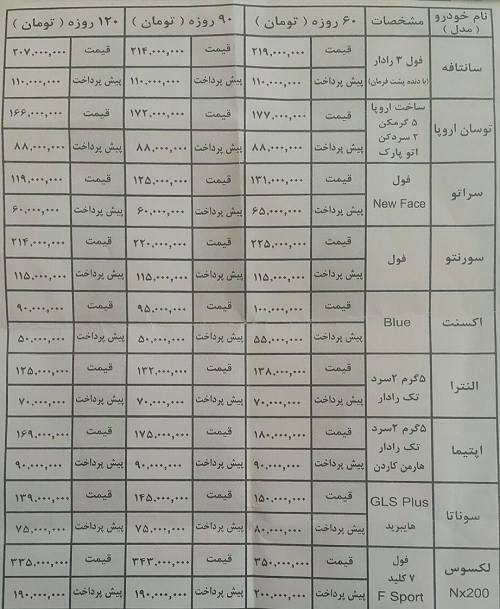 نام خودرو ( مدل ) مشخصات ۶۰ روزه ( تومان ) ۹۰ روزه ( تومان ) ۱۲۰ روزه ( تومان )
سانتافه فول ۳ رادار (با دنده پشت فرمان)
قیمت ۲۱۹.۰۰۰,۰۰۰ قیمت ۲۱۴.۰۰۰,۰۰۰ قیمت ۲۰۷.۰۰۰,۰۰۰
پیش پرداخت ۱۱۰.۰۰۰,۰۰۰ پیش پرداخت ۱۱۰.۰۰۰,۰۰۰ پیش پرداخت ۱۱۰.۰۰۰,۰۰۰
توسان اروپا ساخت اروپا ۵ گرمکن ۲ سردکن اتو پارک
قیمت ۱۷۷.۰۰۰,۰۰۰ قیمت ۱۷۲.۰۰۰,۰۰۰ قیمت ۱۶۶.۰۰۰,۰۰۰
پیش پرداخت ۸۸.۰۰۰,۰۰۰ پیش پرداخت ۸۸.۰۰۰,۰۰۰ پیش پرداخت ۸۸.۰۰۰,۰۰۰
سراتو فول New Face
قیمت ۱۳۱.۰۰۰,۰۰۰ قیمت ۱۲۵.۰۰۰,۰۰۰ قیمت ۱۱۹.۰۰۰,۰۰۰
پیش پرداخت ۶۵.۰۰۰,۰۰۰ پیش پرداخت ۶۰.۰۰۰,۰۰۰ پیش پرداخت ۶۰.۰۰۰,۰۰۰
سورنتو فول
قیمت ۲۲۵.۰۰۰,۰۰۰ قیمت ۲۲۰.۰۰۰,۰۰۰ قیمت ۲۱۴.۰۰۰,۰۰۰
پیش پرداخت ۱۱۵.۰۰۰,۰۰۰ پیش پرداخت ۱۱۵.۰۰۰,۰۰۰ پیش پرداخت ۱۱۵.۰۰۰,۰۰۰
اکسنت Blue
قیمت ۱۰۰.۰۰۰,۰۰۰ قیمت ۹۵.۰۰۰,۰۰۰ قیمت ۹۰.۰۰۰,۰۰۰
پیش پرداخت ۵۵.۰۰۰,۰۰۰ پیش پرداخت ۵۰.۰۰۰,۰۰۰ پیش پرداخت ۵۰.۰۰۰,۰۰۰
النترا ۵گرم ۲سرد تک رادار
قیمت ۱۳۸.۰۰۰,۰۰۰ قیمت ۱۳۲.۰۰۰,۰۰۰ قیمت ۱۲۵.۰۰۰,۰۰۰
پیش پرداخت ۷۰.۰۰۰,۰۰۰ پیش پرداخت ۷۰.۰۰۰,۰۰۰ پیش پرداخت ۷۰.۰۰۰,۰۰۰
اپتیما ۵گرم ۲سرد تک رادار هارمن کاردن
قیمت ۱۸۰.۰۰۰,۰۰۰ قیمت ۱۷۵.۰۰۰,۰۰۰ قیمت ۱۶۹.۰۰۰,۰۰۰
پیش پرداخت ۹۰.۰۰۰,۰۰۰ پیش پرداخت ۹۰.۰۰۰,۰۰۰ پیش پرداخت ۹۰.۰۰۰,۰۰۰
سوناتا GLS Plus هایبرید
قیمت ۱۵۰.۰۰۰,۰۰۰ قیمت ۱۴۵.۰۰۰,۰۰۰ قیمت ۱۳۹.۰۰۰,۰۰۰
پیش پرداخت ۸۰.۰۰۰,۰۰۰ پیش پرداخت ۷۵.۰۰۰,۰۰۰ پیش پرداخت ۷۵.۰۰۰,۰۰۰
لکسوس Nx200 فول ۷ کلید F Sport
قیمت ۳۵۰.۰۰۰,۰۰۰ قیمت ۳۴۳.۰۰۰,۰۰۰ قیمت ۳۳۵.۰۰۰,۰۰۰
پیش پرداخت ۲۰۰.۰۰۰,۰۰۰ پیش پرداخت ۱۹۰.۰۰۰,۰۰۰ پیش پرداخت ۱۹۰.۰۰۰,۰۰۰